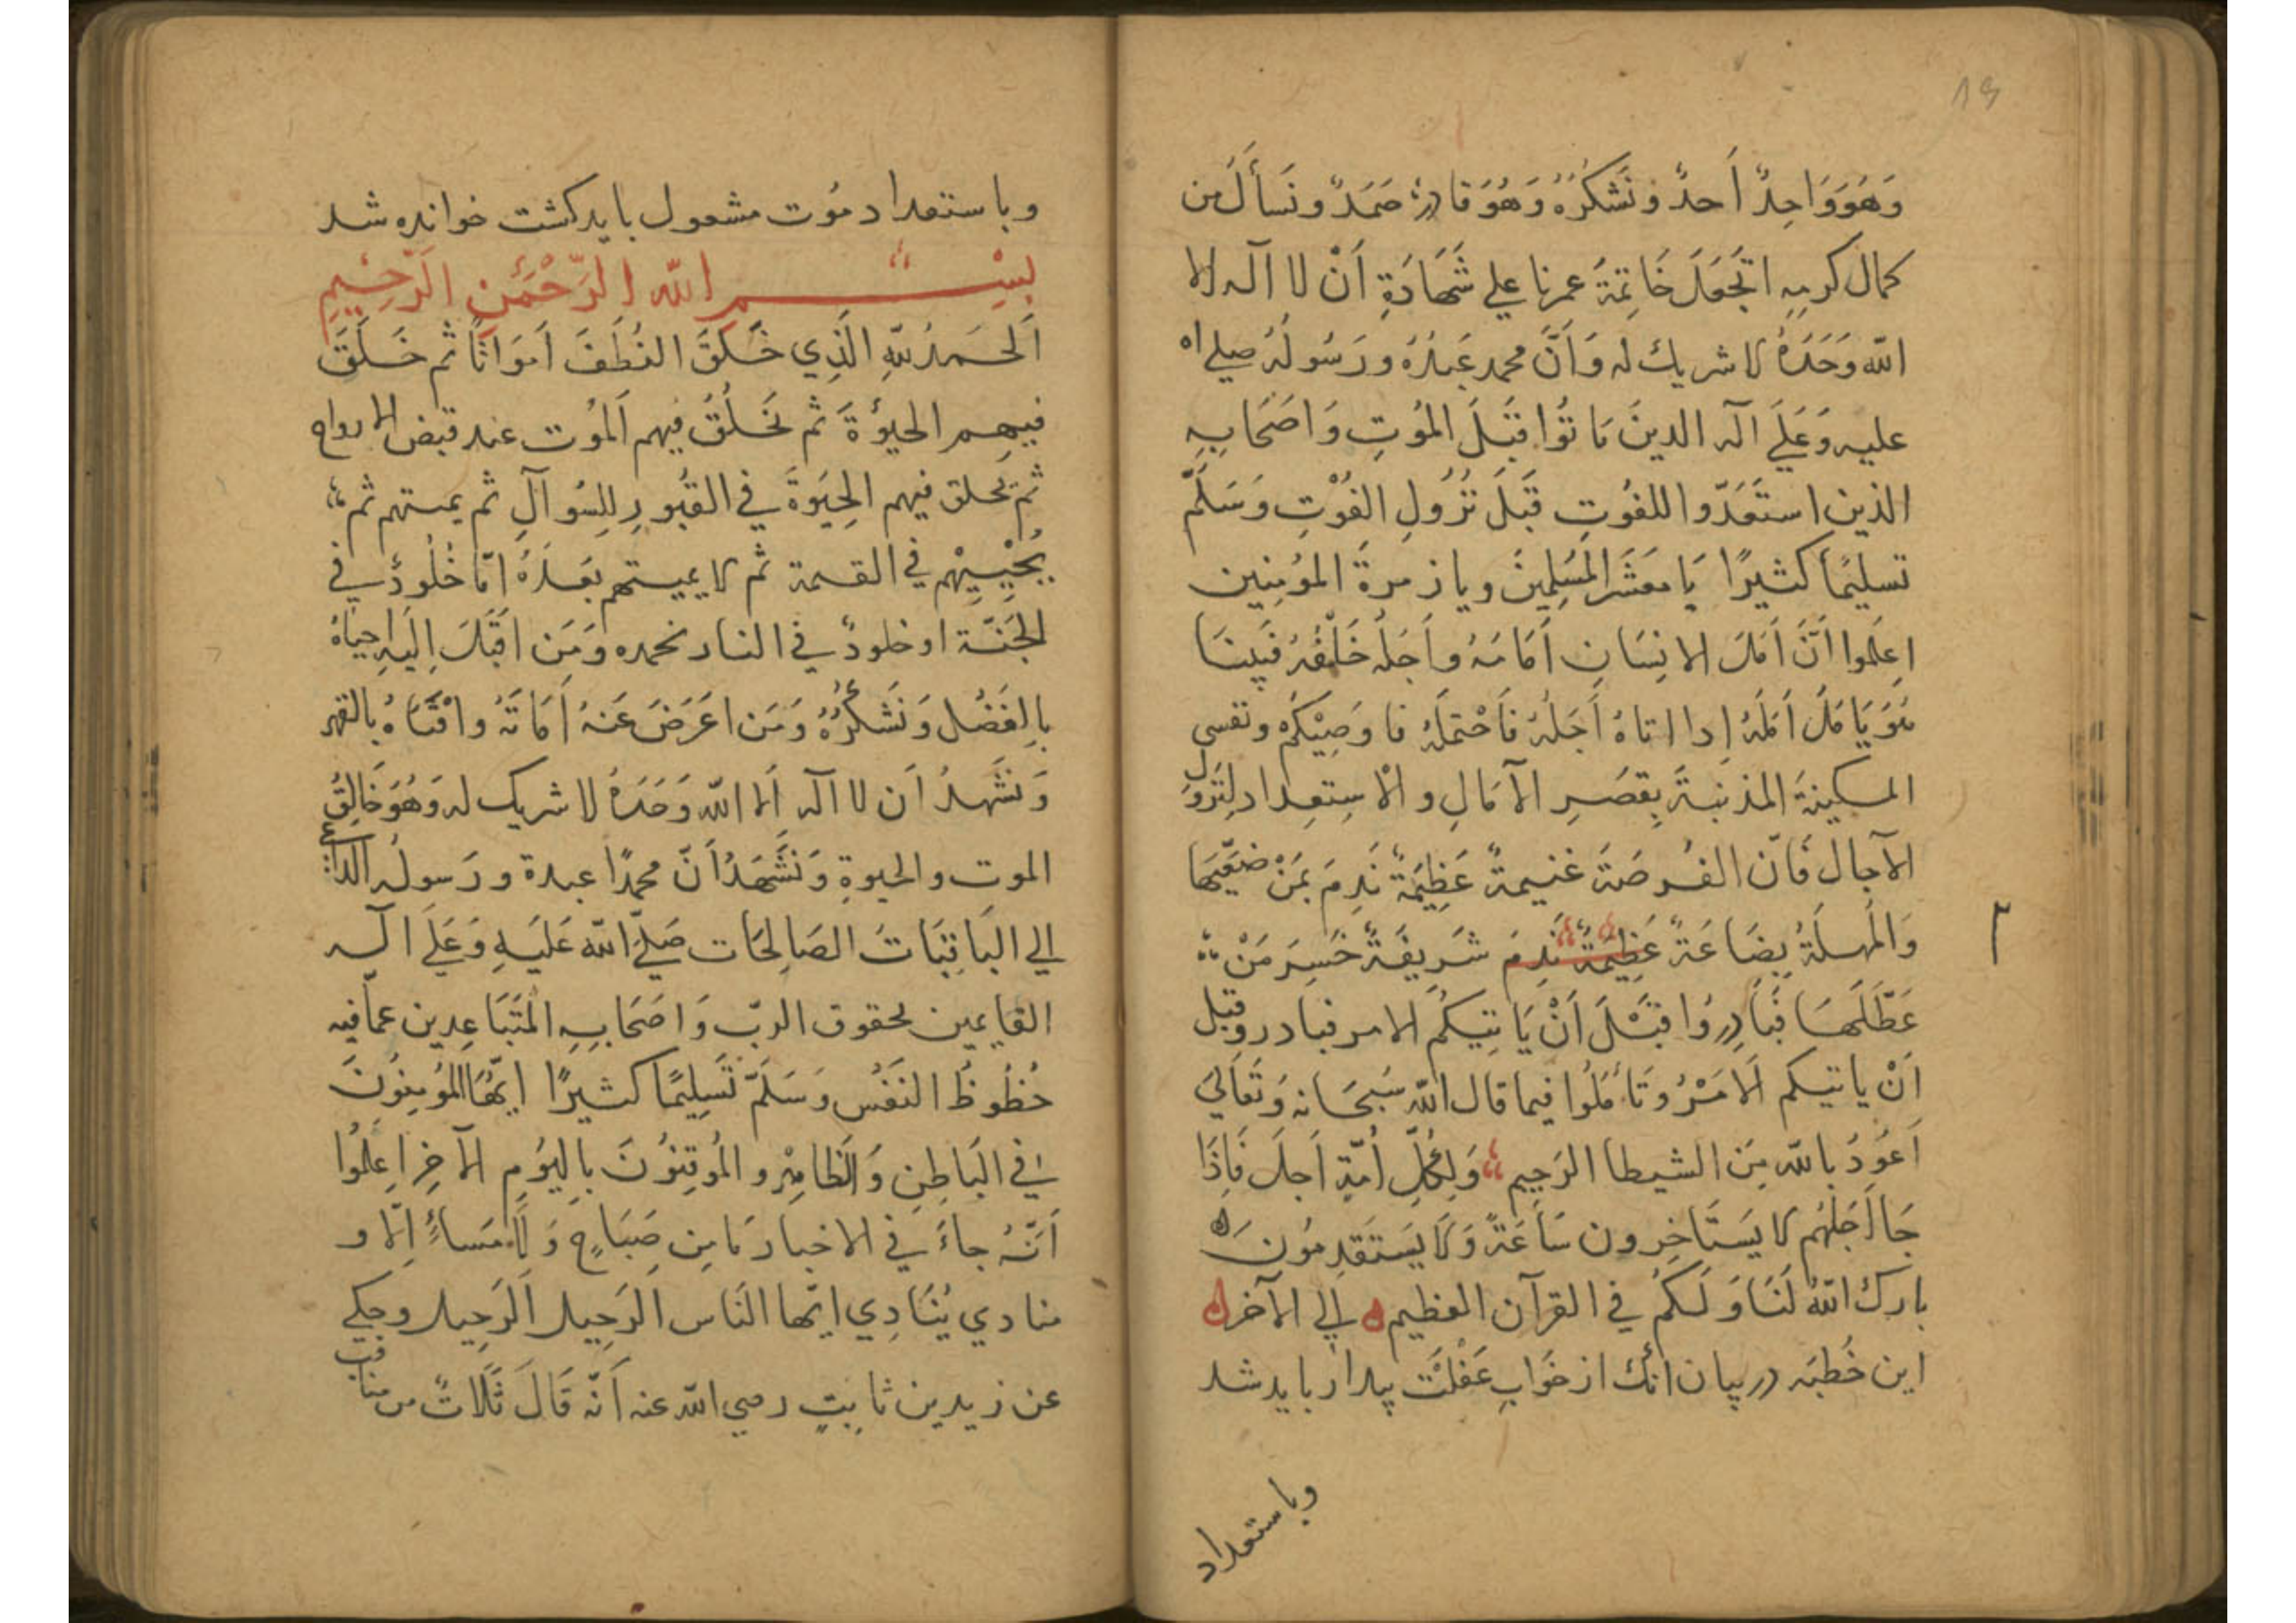 19
وَهُوَ وَاحِدٌ أَحدٌ وَنَشكرُهُ وَهُوَ قادرٌ صَمَدٌ ونَسأَلُ من
كمال كرمِهِ ان تَجعَلَ خَاتِمَةَ عمرنا علي شَهَادَةِ اَنْ لا اله الا
الله وَحدَهُ لا شريك له وَاَنَّ محمد عَبدُهُ ورَسُولُهُ صلي الله
عليه وَعَلَي آله الدينَ مَاتُوا قَبلَ المُوتِ وَاصَحَابِهِ
الذين استَعَدّوا للفُوتِ قَبَلَ نُزُولِ الفُوْتِ وَسَلَّمَ
تسليمًا كثيرًا يَا معَشَرَ المُسَلِمينَ ويا زمرةَ المؤمنِين
اِعلَموا اَنَّ اَمَلَ الانِسَانِ اَمَامَهُ واَجَلُه خَلْفَهُ فَبَينَمَا
هُوَ يَا مَلُ اَمَلَهُ اِدا اتاهُ اَجَلُهُ فَاَحْتمَلَهُ فا وَصِيْكمُ ونفسي
المسكينةَ المذنبةَ بِقصَرِ الآمَالِ والاْستِعِداد لِنُزُوَلِ
الآجالِ فَاَنّ الفُرصَةَ غنيمةٌ عَظِيَمةٌ نَدِمَ بَمَنْ ضيَّعَهَا
وَالمُهلَةُ بِضَاعَةٌ عَظِيَمةٌ نَدِمَ شَرِيفَةٌ خَسِرَ مَنْ
عَطَّلَهَا فَبَادِرُوا قَبَْلَ اَنْ يَاتِيَكمُ الامر فبادروقبل
اَنْ ياتيكم اَلامَرْ وَتَأمَلُوا فيما قال اللهُ سُبحَانه وَتَعَالَي
اَعوُذُ بالله مِنَ الشيطا الرَجيمِ وَلِكُلِّ اُمّةٍ اَجلٌ فَاِذَا
جَا اَجَلهُم لا يَستَاخِرون سَاعَةً وَلَا يَستَقدِمُونَ ه
بارك اللهُ لَنَا وَلَكمُ في القرآن العظيم ه الي الآخر ه
اين خُطبَه در بيان انك از خَوابِ غَفْلَت بيدار بايد شد
وباستعداد
وباستعداد مُوت مشعول بايد كشت خوانده شد
بِسْمِ الله الرَّحْمَنِ الرَّحِيمِ
اَلحَمدُ للهِ الَّذِي خَلَقَ النُطَفَ اَموَاتًا ثم خَلَقَ
فيهِم الحيوُةَ ثم يَخلُقُ فيهم اَلمُوت عند قبض الارواح
ثم يَخلق فيهم الحِيَوةَ في القبُورِ لِلِسُوآلِ ثم يمتهم ثم
يُحْيِيْهم في القيمة ثم لا يميتهم بَعدَهُ امّا خُلُودٌ في
الجَنَّة او خلودٌ في النار نحمده وَمَن اقَبَلَ اِلَيهِ احيَاهُ
بِالفَضُل وَنَشكُرُهُ وَمَن اعَرَضَ عَنهُ اَمَاتَهُ وافْنَاهُ بالقهر
وَنَشَهدُ اَن لا اله الا الله وَحَدَهُ لا شريك له وَهُوَ خَالِقُ
الموت والحيوةِ وَنَشَهَدُ اَنّ محمدًا عبدة ورَسولُه الداعي
الي البَاقيَاتَ الصَالِحَات صَليَّ الله عَليَهِ وَعَلَي آله
القايمين لحقوق الربّ وَاصَحَابِهِ المُتَبَاعِدين عمّا فيه
حُظُوظُ النَفُس وَسَلَّمَ تَسَلِيمًا كثيرًا ايّهَا المُومِنُونَ
في البَاطِنِ وَالظاهِرْ والمُوقِنُونَ بِاليُومِ الآخِرِ اِعلَمُوا
اَنّهُ جاءَ في الاخبار مَا مِن صَبَاحٍ وَلَا مَساءً اِلّا و
منادي يُنَادِي ايّها النَاس الَرحِيل الرَحِيل وحكي
عن زيد بن ثابتٍ رضي الله عنه اَنّه قَالَ ثَلَاثٌ من مناقب